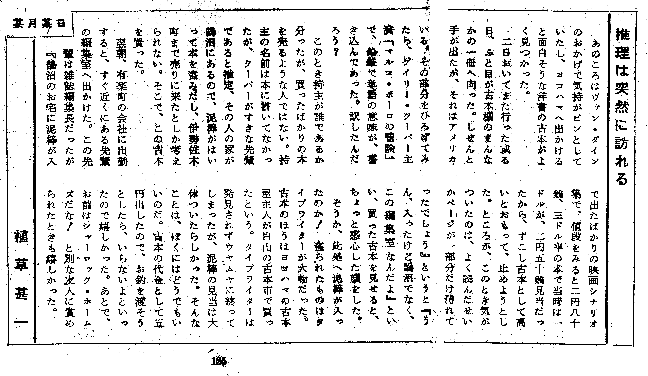 某月某日
推理は突然に訪れる
植草甚一
あのころはヴァン・ダイン
のおかげで気持がピンとして
いたし、ヨコハマへ出かける
と面白そうな洋書の古本がよ
く見つかった。
二日おいてまた行った或る
日、ふと目が古本棚のまんな
かの一冊へ向った。しぜんと
手が出たが、それはアメリカ
で出たばかりの映画シナリオ
集で、値段をみると二円八十
銭。三ドル半の本で当時は一
ドルが、二円五十銭見当だっ
たから、すこし古本として高
いとおもって、止めようとし
た。ところが、このとき気が
ついたのは、よく読んだせい
かページが一部分だけ薄れて
いる。その部分をひろげてみ
たら、ゲイリー・クーパー主
演「マルコ・ポーロの冒険」
で、鉛筆で単語の意味が、書
き込んであった。訳したんだ
ろう？
このとき持主が誰であるか
分ったが、買ったばかりの本
を売るような人ではない。持
主の名前は本に書いてなかっ
たが、クーパーがすきな先輩
であると推定、その人の家が
鵠沼にあるので、泥棒がはい
って本を盗みだし、伊勢佐木
町まで売りに来たとしか考え
られない。そこで、この古本
を買った。
翌朝、有楽町の会社に出勤
すると、すぐ近くにある先輩
の編集室へ出かけた。この先
輩は雑誌編集長だったが
『鵠沼のお宅に泥棒が入
ったでしょう』というと『う
ん、入ったけど鵠沼でなく、
この編集室なんだよ』とい
い、買った古本を見せると、
ちょっと感心した顔をした。
そうか、此処へ泥棒が入っ
たのか！ 盗られたものはタ
イプライターが大物だった。
古本のほうはヨコハマの古本
屋主人が目白の古本市で買っ
たという。タイプライターは
発見されずウヤムヤに終って
しまったが、泥棒の見当は大
体ついたらしかった。そんな
ことは、ぼくにはどうでもい
いのだ。古本の代金として五
円出したので、お釣を渡そう
としたら、いらないよといっ
たので嬉しかった。あとで、
お前はシャーロック・ホーム
ズだな！ と別な友人に賞め
られたときも嬉しかった。